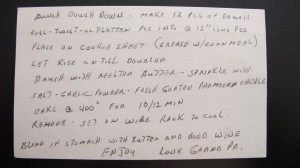 PUNCH DOUGH DOWN - MAKE 12 PCS OF DOUGH.
ROLL - TWIST - OR FLATTEN PCS INTO @ 12" LONG PCS
PLACE ON COOKIE SHEET - (GREASED W/CORNMEAL)
LET RISE UNTILL DOUBLED
BRUSH WITH MELTED BUTTER - SPRINKLE WITH
SALT - GARLIC POWDER - FRESH GRATED PARMESAN CHEESE
BAKE @ 400° FOR 10/12 MIN
REMOVE - SET ON WIRE RACK TO COOL.
BLEND IN STOMACH WITH BUTTER AND GOOD WINE
ENJOY LOVE GRAND PA.